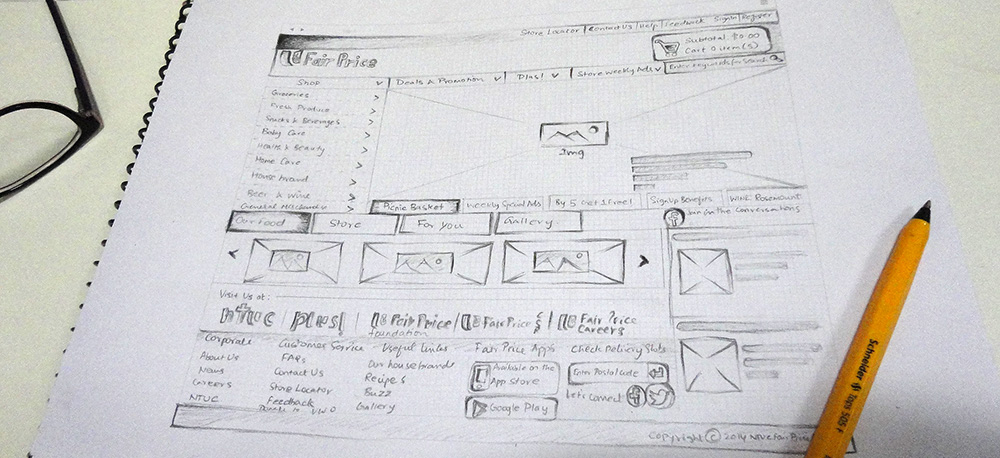 Store Locator | Contact Us | Help | Feedback SignIn | Register
Fair Price
Subtotal $0.00
Cart 0 item(s)
Shop
Deals & Promotion
Plus!
Store weekly Ads
Enter keywords for Search
Groceries
Fresh Produce
Snacks & Beverages
Baby Care
Health & Beauty
Home Care
House brand
Beer & wine
General Merchandise
Img
Picnic Basket
Weekly Special Ads
By 5 Get 1 Free!
SignUp Benefits
WINE Rosemount
Our Food
Store
For You
Gallery
Join in the Conversations
Visit Us at:
ntuc | plus! | Fair Price | Fair Price | Fair Price
foundation
Careers
Corporate
About Us
News
Careers
NTUC
Customer Service
FAQs
Contact Us
Store Locator
Feedback
Useful Links
Our house brands
Recipes
Buzz
Gallery
Fair Price Apps
Available on the
App Store
Google Play
Check Delivery Slots
Enter Postal Code
Let's Connect
Copyright © 2014 NTUC Fair
Schneider Tops 505 F